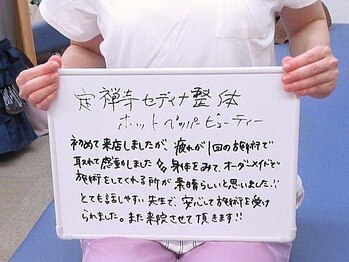 定禅寺セディナ整体
ホットペッパービューティー
初めて来店しましたが、疲れが1回の施術で
取れて感動しました!! 身体をみて、オーダーメイドで
施術をしてくれる所が素晴らしいと思いました!!
とても話しやすい先生で、安心して施術を受け
られました。また来院させて頂きます!!